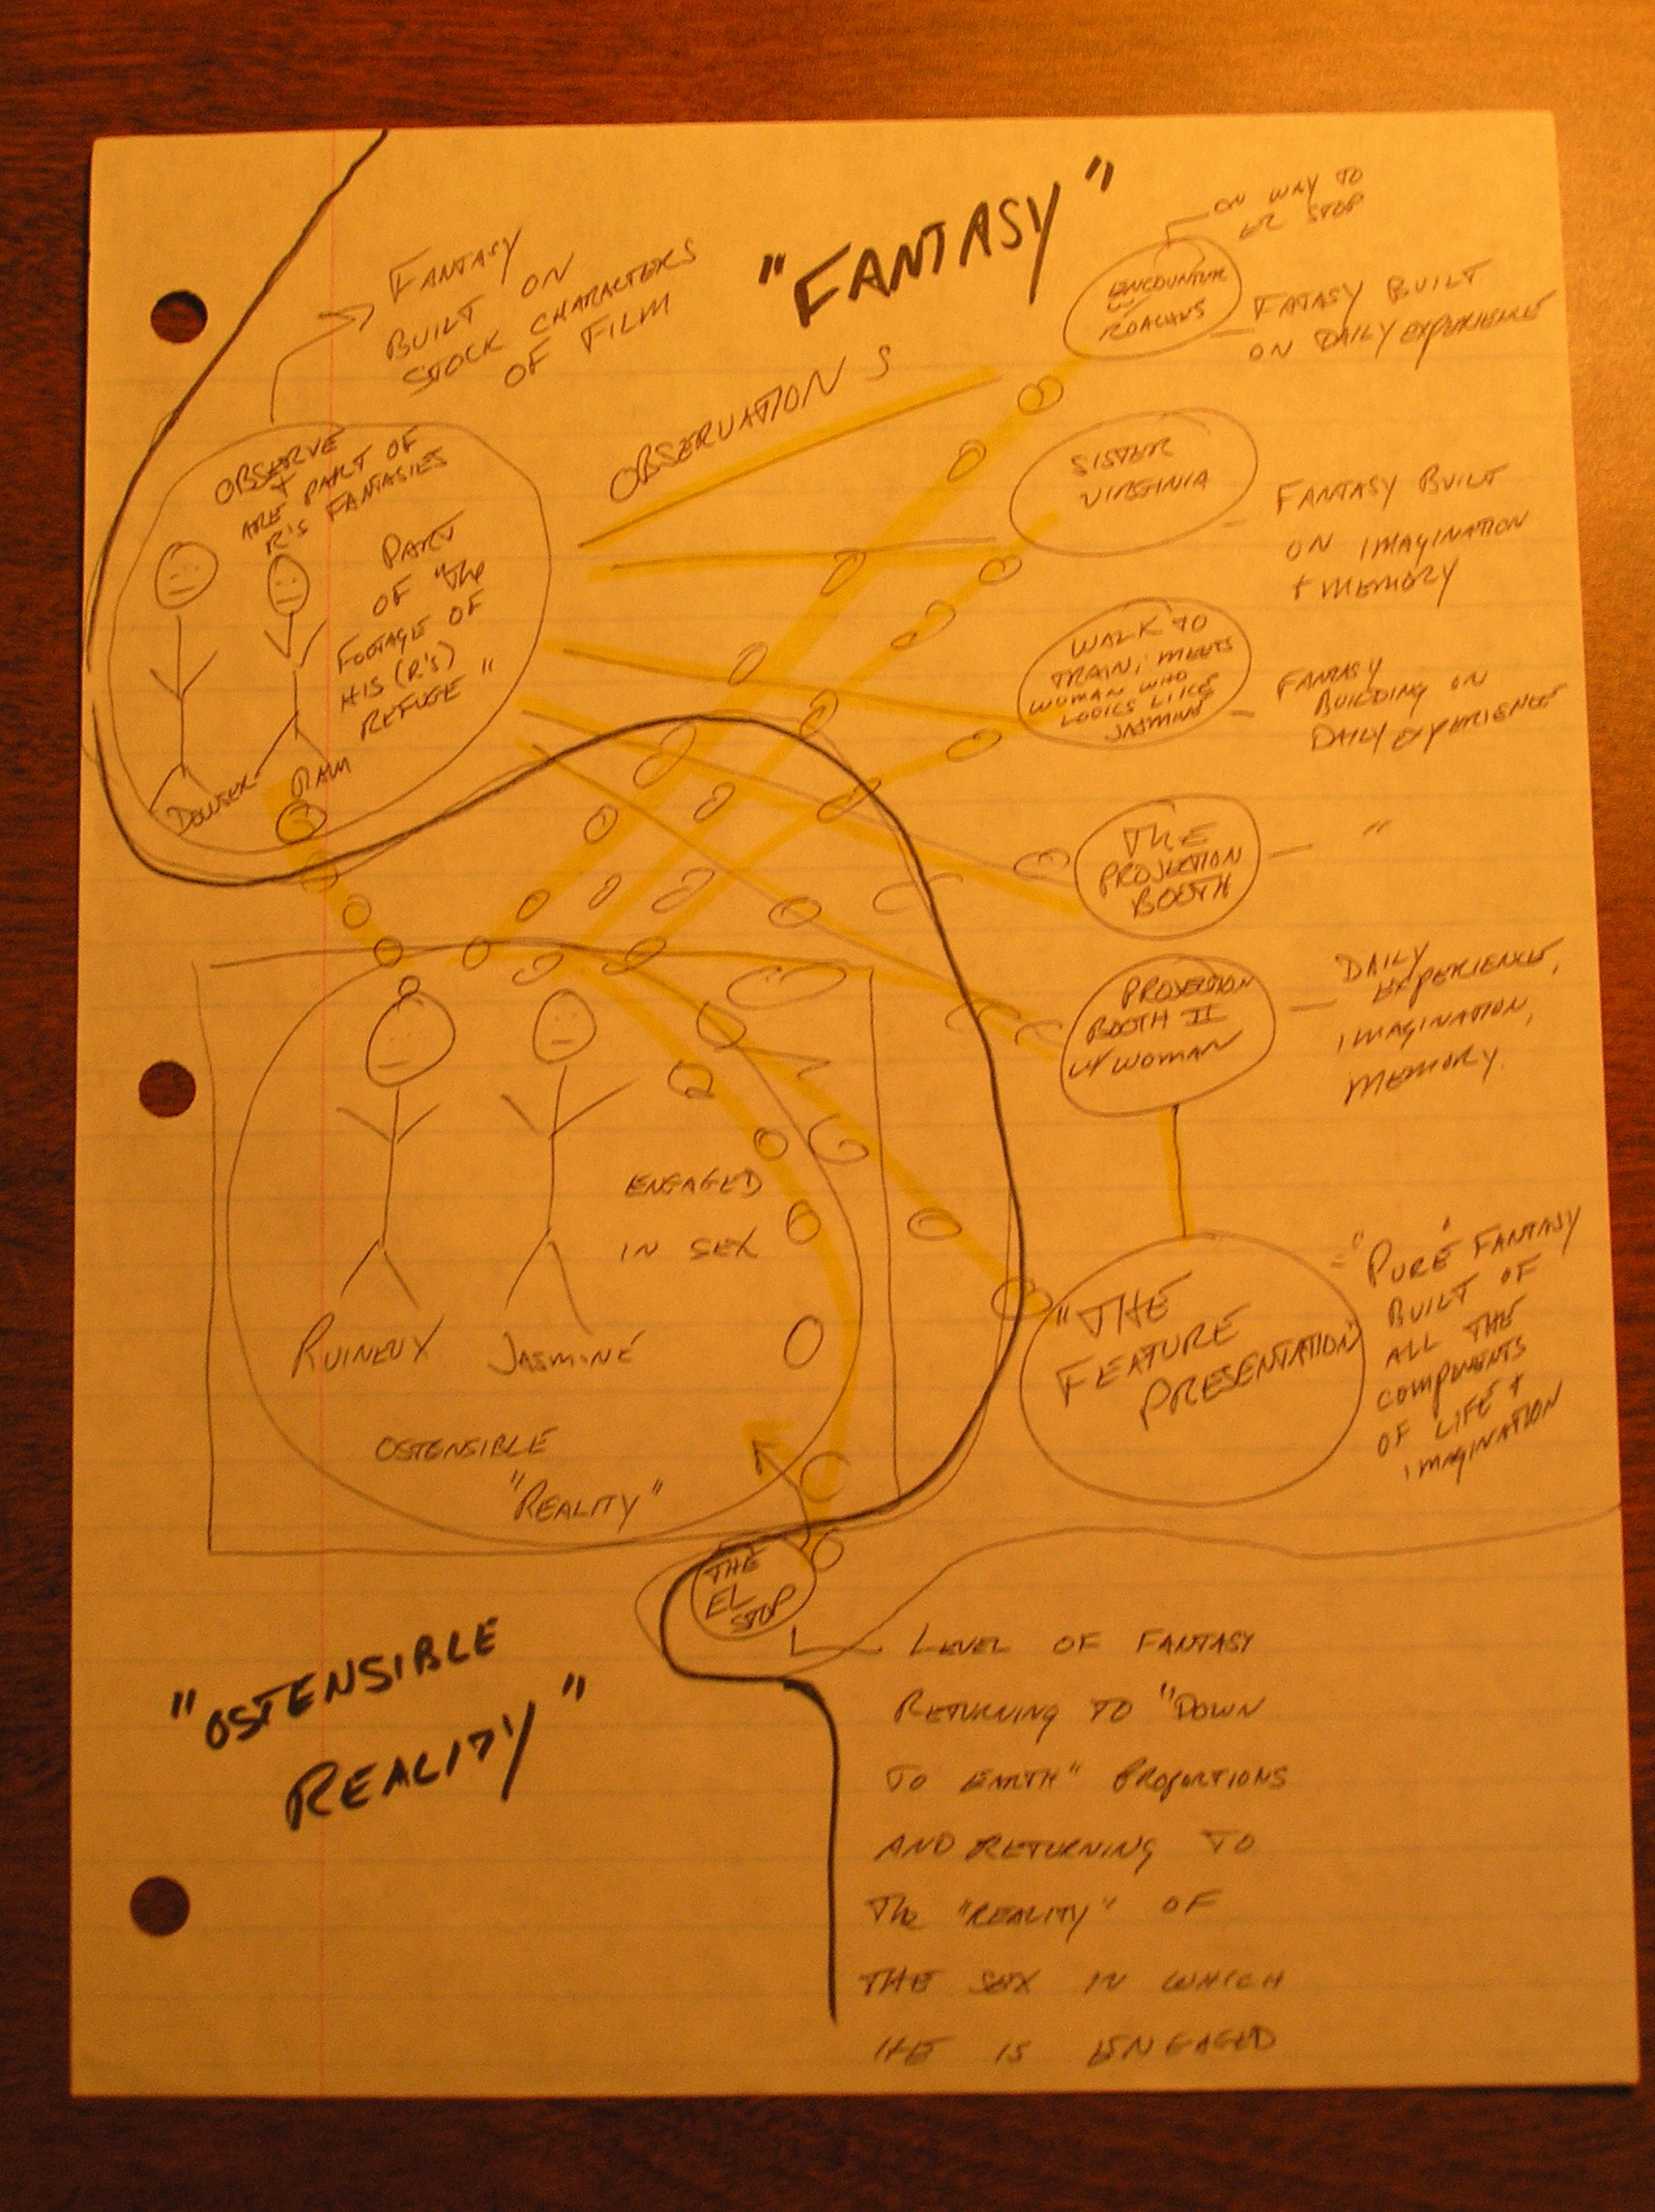 "FANTASY"
FANTASY
BUILT ON
STOCK CHARACTERS
OF FILM
OBSERVATIONS
OBSERVE
+
ARE PART OF
R's FANTASIES
PART
OF "The
FOOTAGE OF
HIS (R's)
REFUGE"
RAM
ON WAY TO
STOP
ENCOUNTER
W/
ROACHES
FATASY BUILT
ON DAILY EXPERIENCE
SISTER
VIRGINIA
FANTASY BUILT
ON IMAGINATION
+ MEMORY
WALK TO
TRAIN; MEETS
WOMAN WHO
LOOKS LIKE
JASMINE
FANTASY
BUILDING ON
DAILY EXPERIENCE
THE
PROJECTION
BOOTH
"
PROJECTION
BOOTH II
W/ WOMAN
DAILY
EXPERIENCE,
IMAGINATION,
MEMORY.
"THE
FEATURE
PRESENTATION"
= "PURE" FANTASY
BUILT OF
ALL THE
COMPONENTS
OF LIFE +
IMAGINATION
ENGAGED
IN SEX
JASMINE
OSTENSIBLE
"REALITY"
THE
EL
STOP
"OSTENSIBLE
REALITY"
LEVEL OF FANTASY
RETURNING TO "DOWN
TO EARTH" PROPORTIONS
AND RETURNING TO
The "REALITY" OF
THE SEX IN WHICH
HE IS ENGAGED